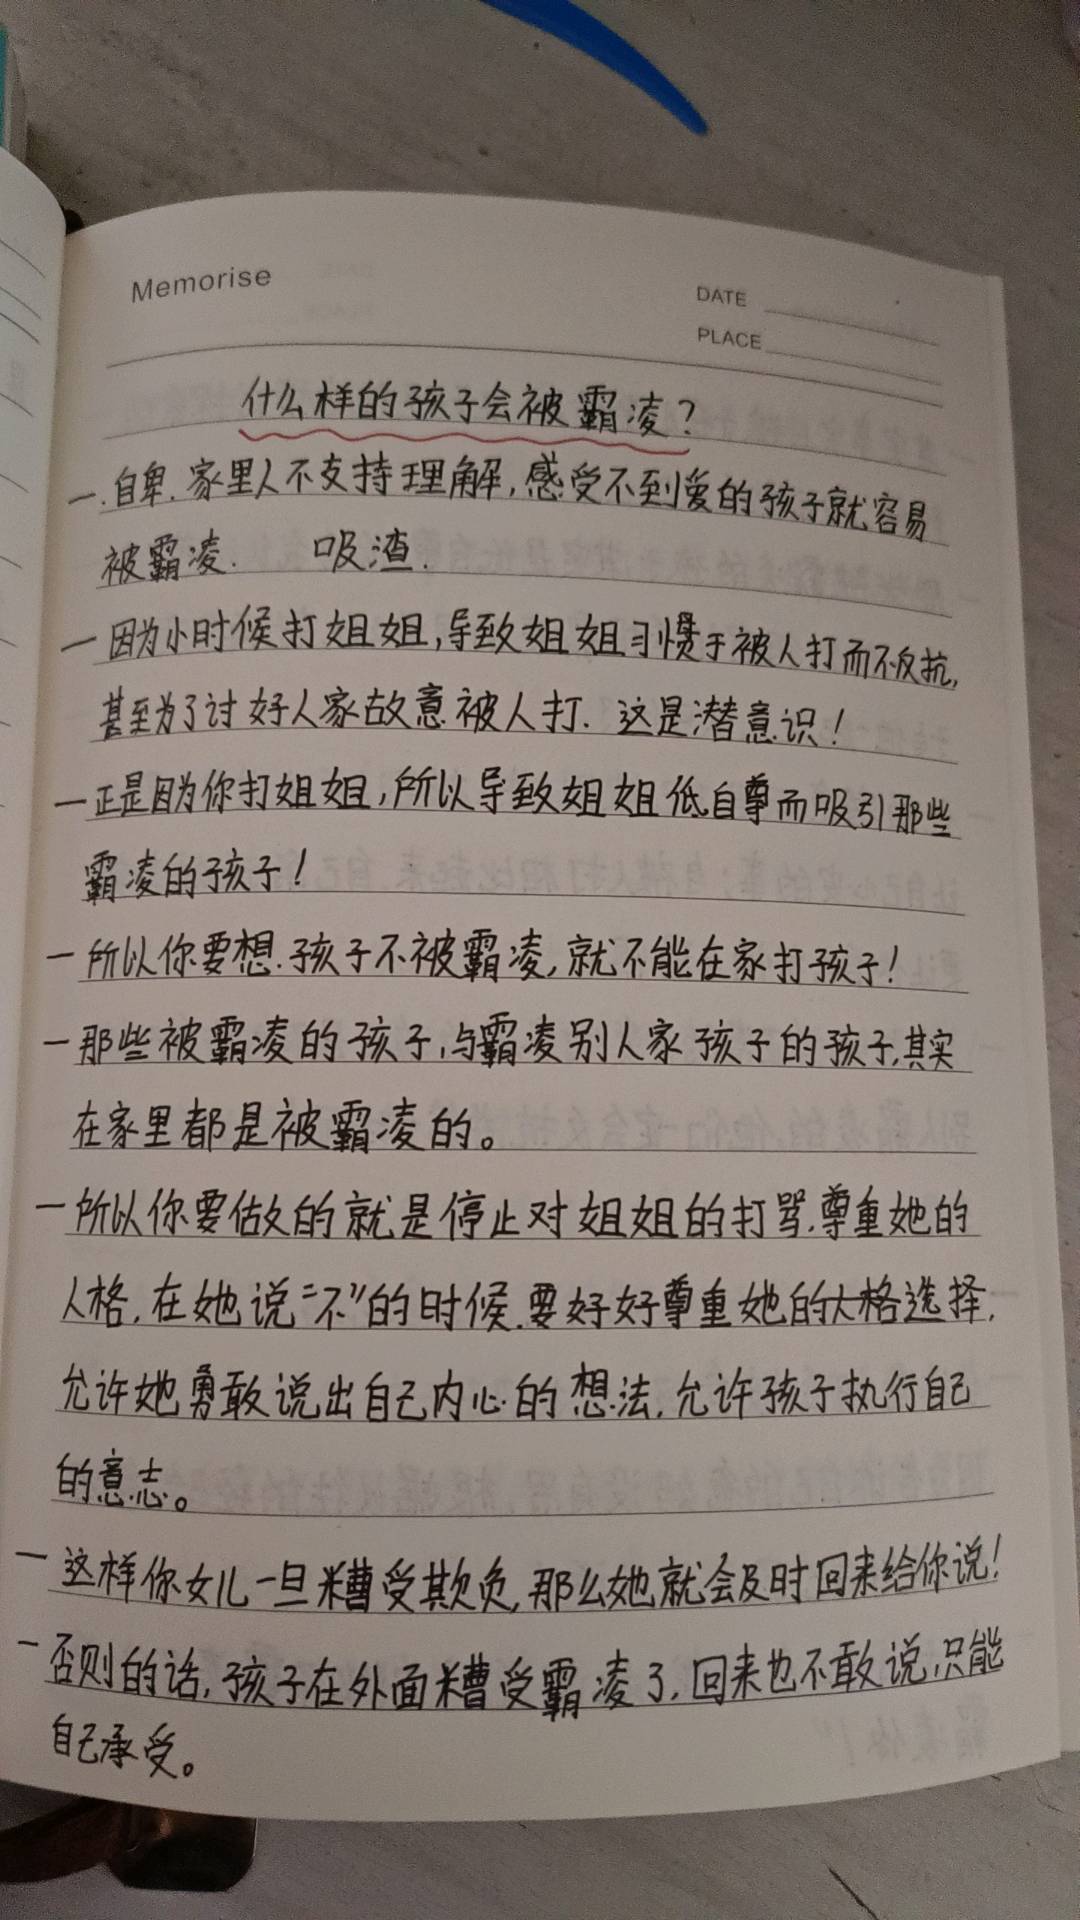 Memorise
DATE
PLACE
什么样的孩子会被霸凌?
一.自卑.家里人不支持理解,感受不到爱的孩子就容易
被霸凌. 吸渣.
一因为小时候打姐姐,导致姐姐习惯于被人打而不反抗,
甚至为了讨好人家故意被人打. 这是潜意识!
一正是因为你打姐姐,所以导致姐姐低自尊而吸引那些
霸凌的孩子!
一所以你要想.孩子不被霸凌,就不能在家打孩子!
一那些被霸凌的孩子,与霸凌别人家孩子的孩子,其实
在家里都是被霸凌的。
一所以你要做的就是停止对姐姐的打骂.尊重她的
人格,在她说“不”的时候.要好好尊重她的人格选择,
允许她勇敢说出自己内心的想法,允许孩子执行自己
的意志。
一这样你女儿一旦糟受欺负,那么她就会及时回来给你说!
一否则的话,孩子在外面糟受霸凌了,回来也不敢说,只能
自己承受。